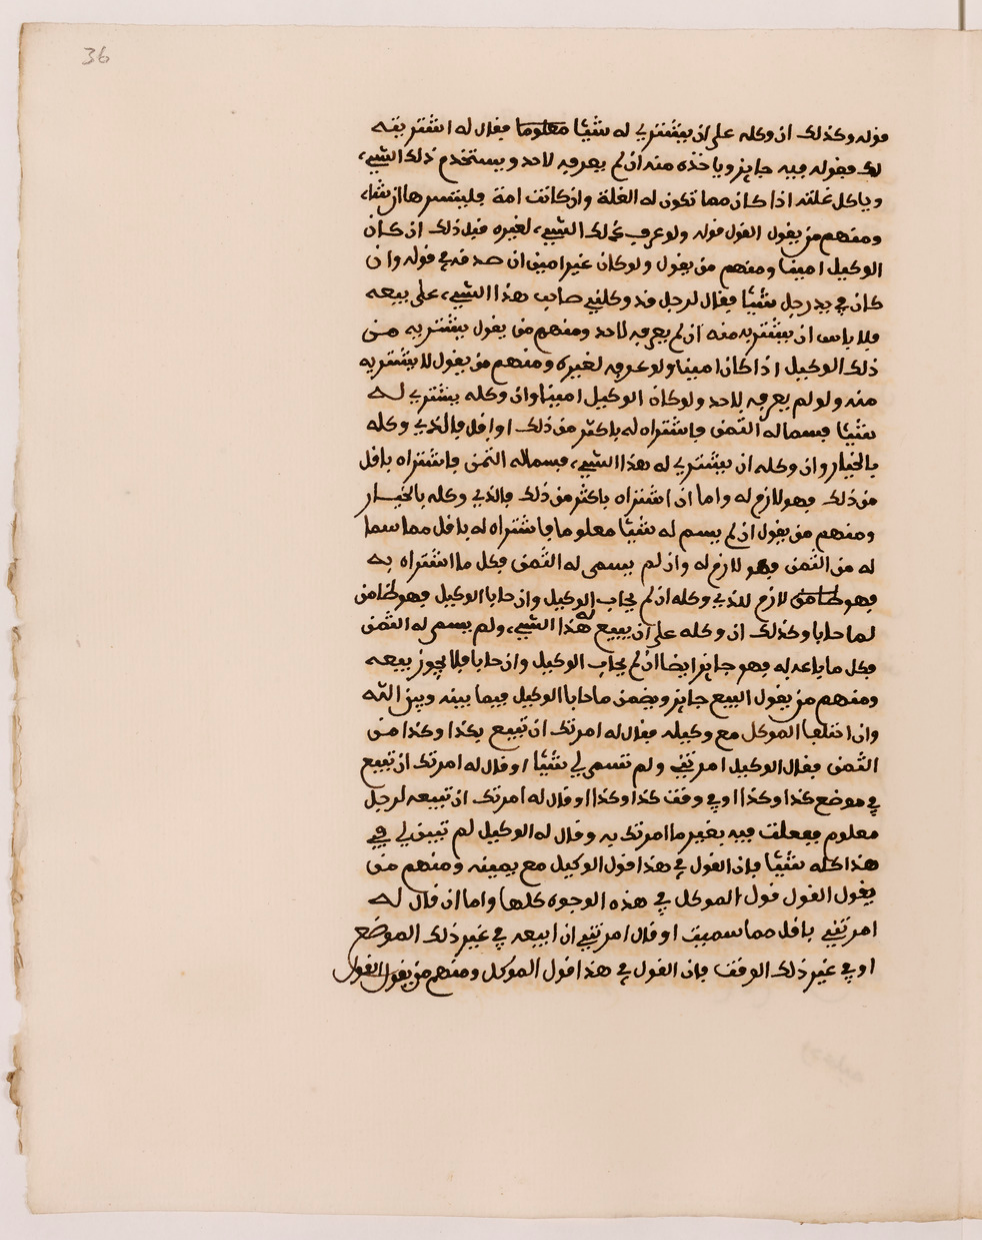 36
قوله وكذلك ان وكله على ان يشتري له شيئا معلوما فقال له اشتريته
لك فقوله فيه جايز وياخذه منه ان لم يعرفه لاحد ويستخدم ذلك الشيء
وياكل غلته اذا كان مما تكون له الغلة وان كانت امة فليتسرها ان شاء
ومنهم من يقول القول قوله ولو عرف ذلك الشيء لغيره قبل ذلك ان كان
الوكيل امينا ومنهم من يقول ولو كان غير امين ان صدقه في قوله وان
كان في يد رجل شيئا فقال لرجل قد وكلني صاحب هذا الشيء على بيعه
فلا باس ان يشتريه منه ان لم يعرفه لاحد ومنهم من يقول يشتريه من
ذلك الوكيل اذا كان امينا ولو عرفه لغيره ومنهم من يقول لا يشتريه
منه ولو لم يعرفه لاحد ولو كان الوكيل امينا وان وكله يشتري له
شيئا فسما له الثمن فاشتراه له باكثر من ذلك او اقل فالذي وكله
بالخيار وان وكله ان يشتري له هذا الشيء فسما له الثمن فاشتراه باقل
من ذلك فهو لازم له واما ان اشتراه باكثر من ذلك فالذي وكله بالخيار
ومنهم من يقول ان لم يسم له شيئا معلوما فاشتراه له باقل مما سما
له من الثمن فهو لازم له وان لم يسمى له الثمن فكل ما اشتراه به
فهو ضامن لازم للذي وكله ان لم يحاب الوكيل وان حابا الوكيل فهو ضامن
لما حابا وكذلك ان وكله على ان يبيع له هذا الشيء ولم يسم له الثمن
فكل ما باعه به فهو جايز ايضا ان لم يحاب الوكيل وان حابا فلا يجوز بيعه
ومنهم من يقول البيع جايز ويضمن ما حابا الوكيل فيما بينه وبين الله
وان اختلفا الموكل مع وكيله فقال له امرتك ان تبيع بكذا وكذا من
الثمن فقال الوكيل امرتني ولم تسمى لي شيئا او قال له امرتك ان تبيع
في موضع كذا وكذا او في وقت كذا وكذا او قال له امرتك ان تبيعه لرجل
معلوم ففعلت فيه بغير ما امرتك به وقال له الوكيل لم تبين لي في
هذا كله شيئا فان القول في هذا قول الوكيل مع يمينه ومنهم من
يقول القول قول الموكل في هذه الوجوه كلها واما ان قال له
امرتني باقل مما سميت او قال امرتني ان ابيعه في غير ذلك الموضع
او في غير ذلك الوقت فان القول في هذا قول الموكل ومنهم من يقول القول